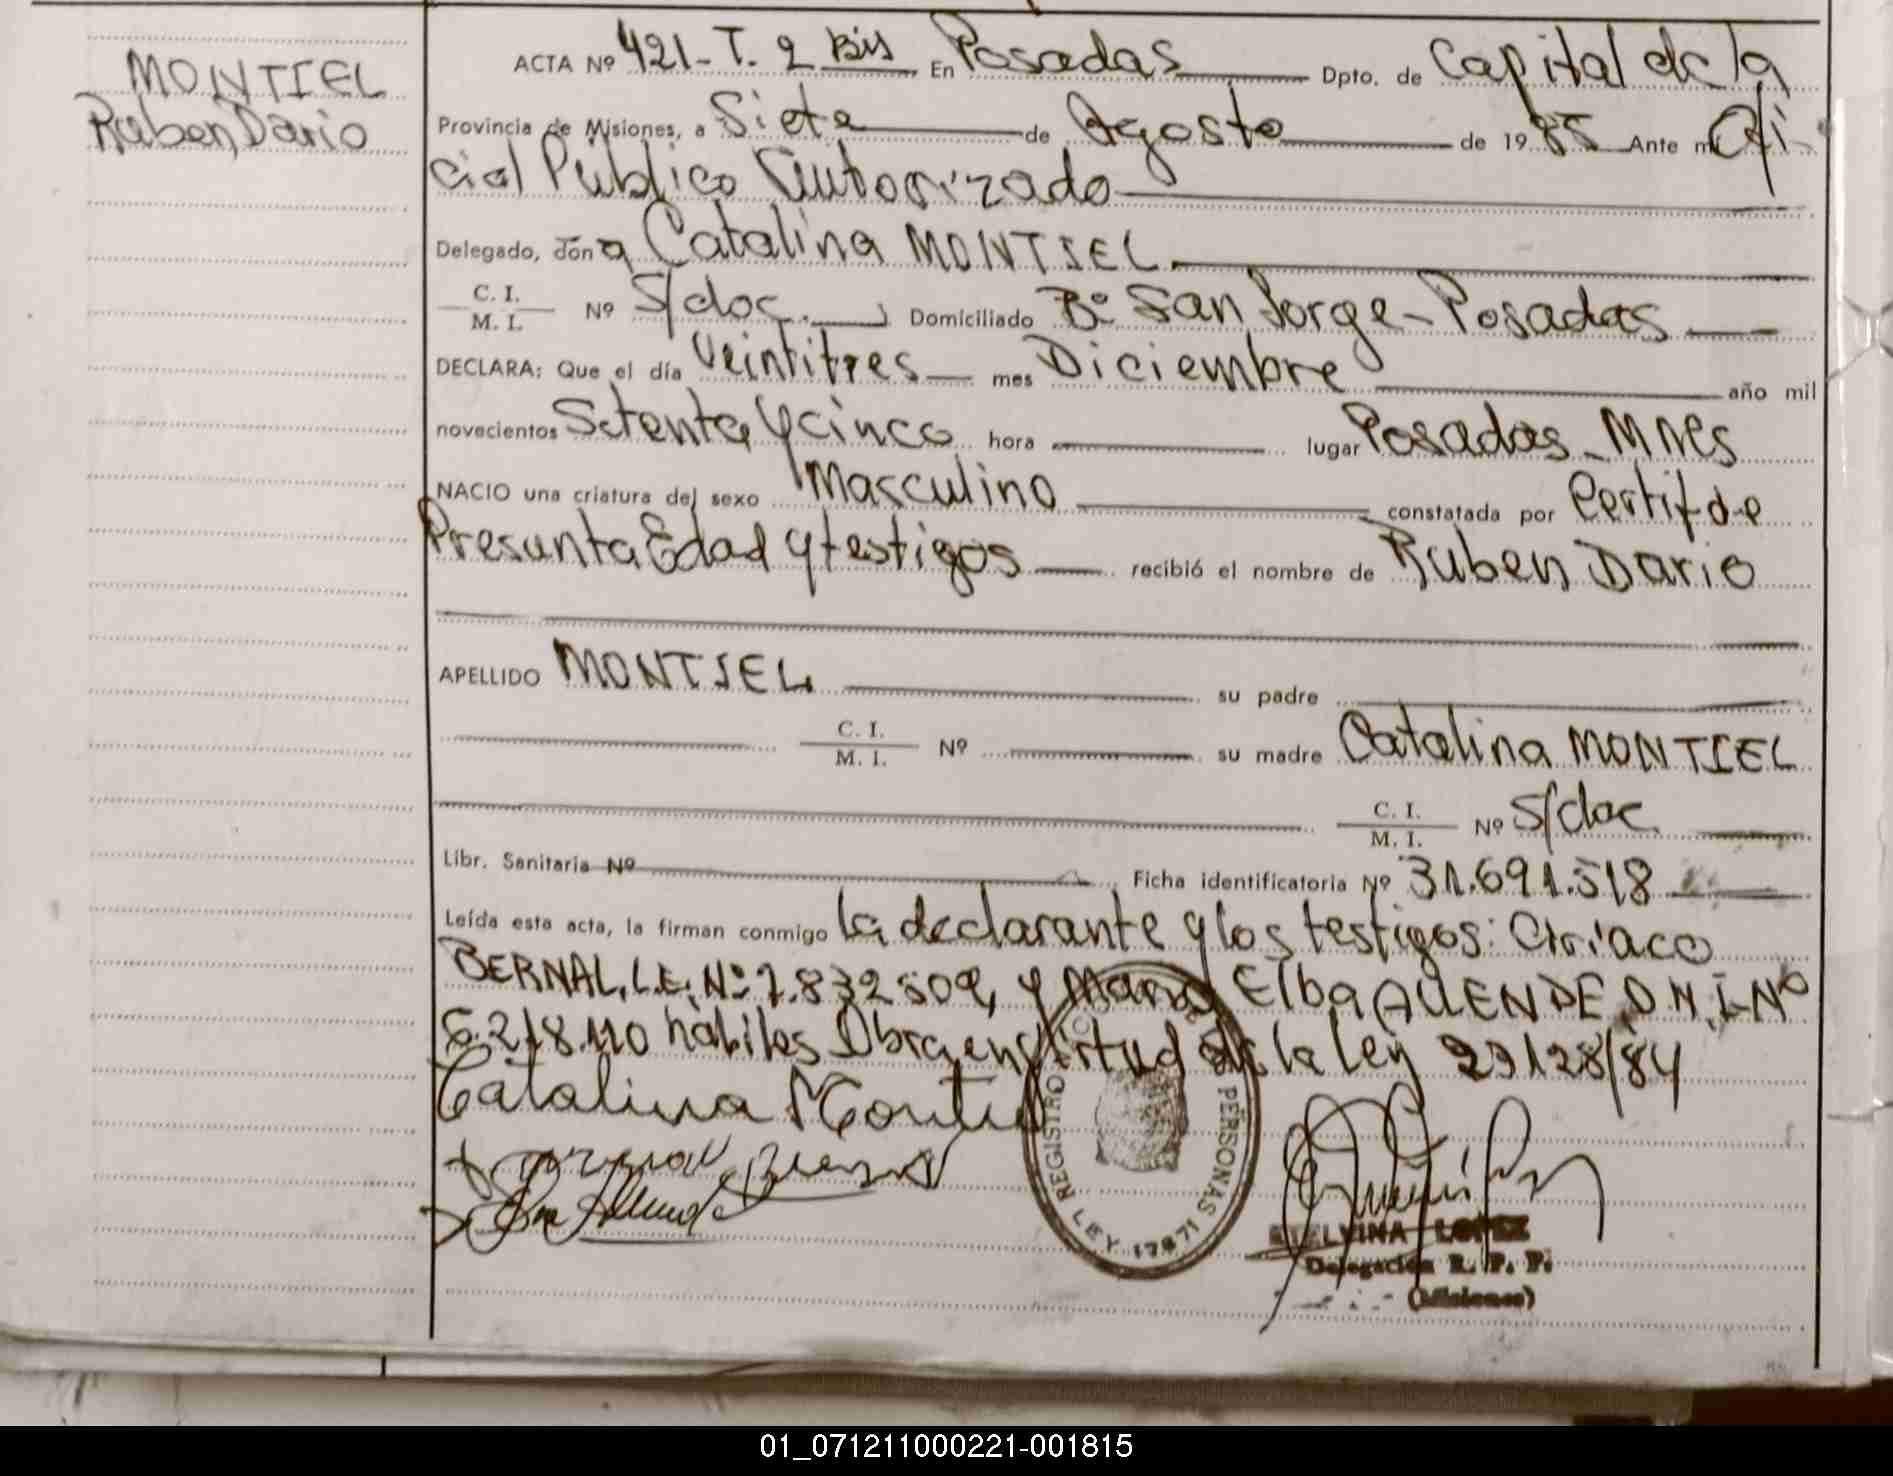 MONTIEL
Ruben Dario
ACTA Nº 421-T. 2 Bis En Posadas Dpto. de Capital de la
Provincia de Misiones, a Siete de Agosto de 1985 Ante mi Ofi-
cial Público Autorizado
Delegado, don a Catalina MONTIEL
C. I.
M. I. Nº S/doc. Domiciliado Bº San Jorge - Posadas
DECLARA: Que el día Veintitres mes Diciembre año mil
novecientos Setenta y cinco hora lugar Posadas - Mnes
NACIO una criatura del sexo Masculino constatada por Certif de
Presunta Edad y testigos recibió el nombre de Ruben Dario
APELLIDO MONTIEL su padre
C. I.
M. I. Nº su madre Catalina MONTIEL
C. I.
M. I. Nº S/doc
Libr. Sanitaria Nº Ficha identificatoria Nº 31.691.518
Leída esta acta, la firman conmigo la declarante y los testigos: Ciriaco
BERNAL, L.E. Nº 7.832.509, y Maria Elba ALLENDE, D.N.I. Nº
6.218.110 habiles Obra en virtud de la Ley 23128/84
Catalina Montiel
REGISTRO PERSONAS
LEY 17671
ETELVINA LOPEZ
Delegación R. P. P.
(Misiones)
01_071211000221-001815